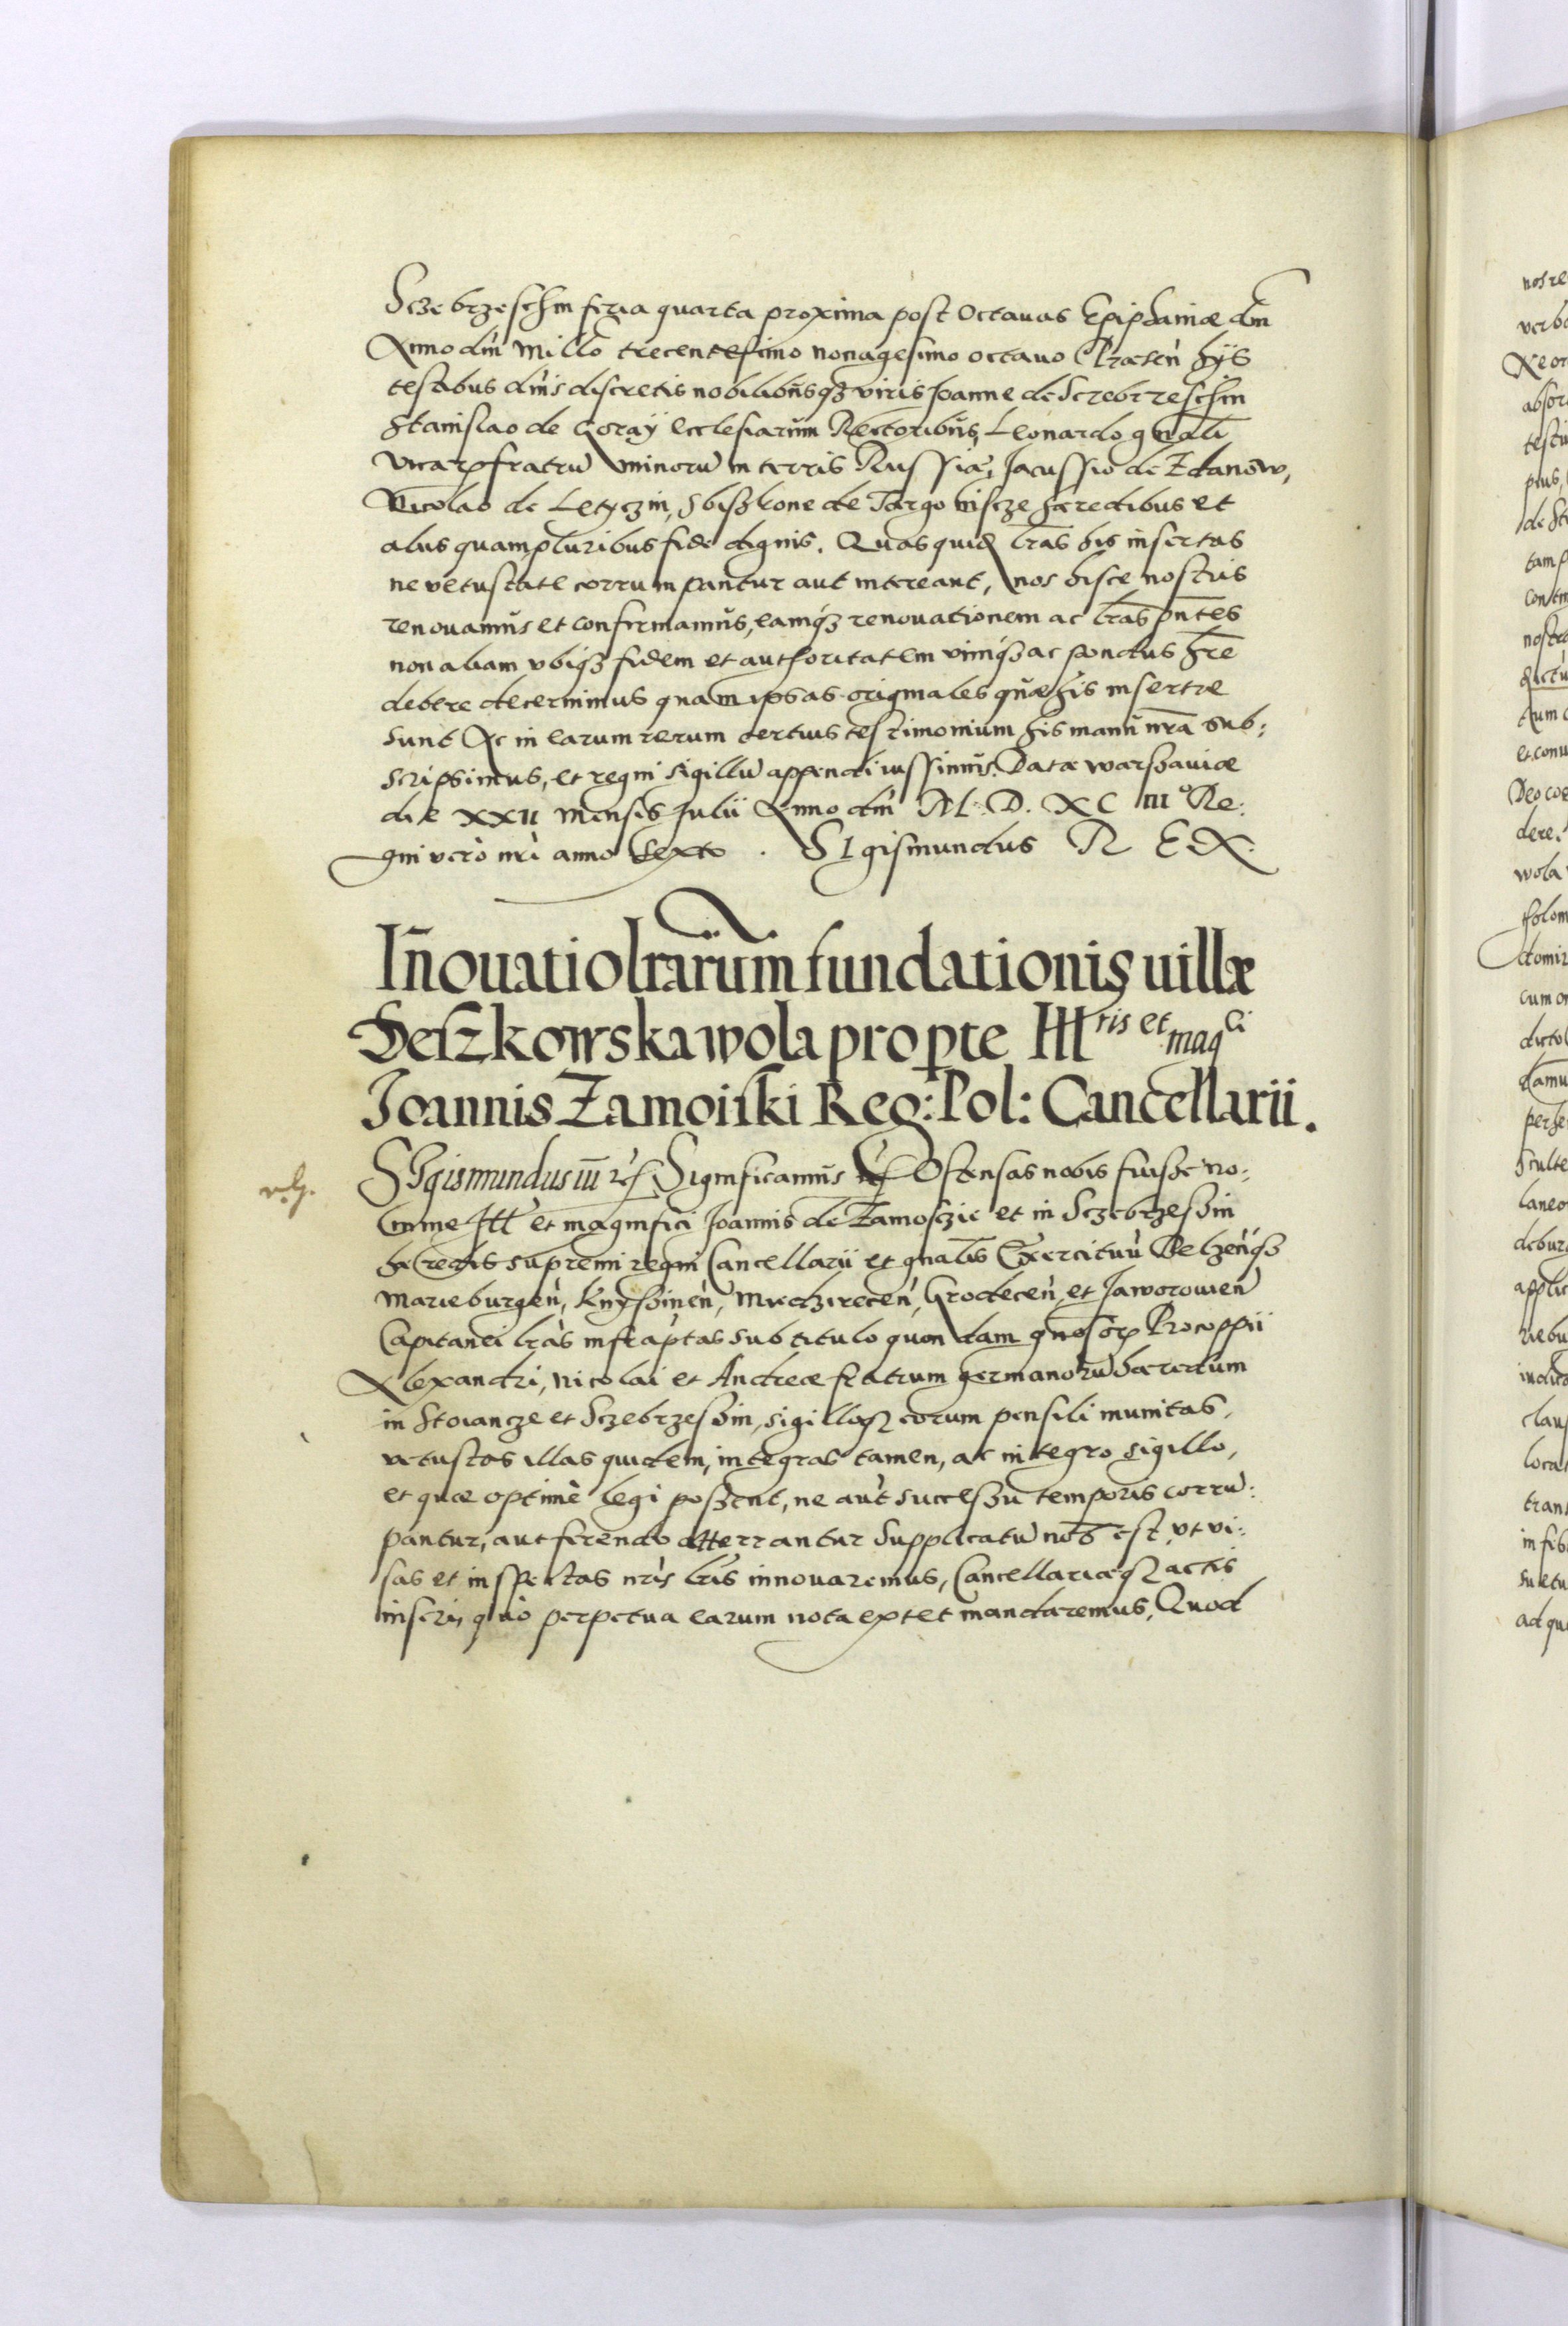 Sczebrzeschin feria quarta proxima post Octauas Epiphaniæ dn̄i
Anno dn̄i Millo trecentesimo nonagesimo octauo Præsen̄ hÿs
testibus dn̄is discretis nobilibusq3 viris Joanne de Screbrzeschin
Stanislao de Goraÿ Ecclesiarum Rectoribus, Leonardo gn̄ali
fratrū minorū in terris Russiæ, Jacussio de Zdanow,
Nicolao de Letyczin, Sbiszkone de Targouiscze hæredibus et
aliis quampluribus fide dignis. Quas quid lr̄as his insertas
ne vetustate corrumpantur aut intereant, nos hisce nostris
renouamus et confirmamus, eamq3 renouationem ac lr̄as pn̄tes
non aliam vbiq3 fidem et authoritatem vimq3 ac pondus hr̄e
debere decernimus quam ipsas originales quæ his insertæ
sunt Ac in earum rerum certius testimonium his manū nr̄a sub:
scripsimus, et regni sigillū appendi iussimus. Datæ warszauiæ
die XXII mensis Julii Anno dn̄i M. D. XC III° Re:
gni verò nr̄i anno sexto. SIgismundus R E X.
In̄ouatio lr̄arum fundationis uillæ
Deszkowska wola pro pte Illris et magci
Joannis Zamoiski Reg: Pol: Cancellarii.
SIgismundus iii rc̄ Significamus Ostensas nobis fuisse no:
mine Ill et magnifici Joannis de Zamoszcie et in Sczebrzeszin
hæredis supremi regni Cancellarii et gn̄alis Exercituū Belzen̄q3
Marieburgen̄, Knyszinen̄, Miedzirecen̄, Grodecen̄, et Jaworouien̄
Capitanei lr̄as infrap̄tas sub titulo quondam gn̄osor Procoppii
Alexandri, Nicolai et Andreæ fratrum germanorū hæredum
in Stoiancze et Sczebrzeszin, sigilloq3 eorum pensili munitas,
vetustas illas quidem, integras tamen, ac integro sigillo,
et quæ optimè legi possent, ne aut successu temporis corrū:
pantur, aut ferendo atterrantur Supplicatū nob̄ est, vt vi:
sas et inspectas nr̄is lr̄is innouaremus, Cancellariæq3 actis
inseri, quò perpetua earum nota extet mandaremus, Quod